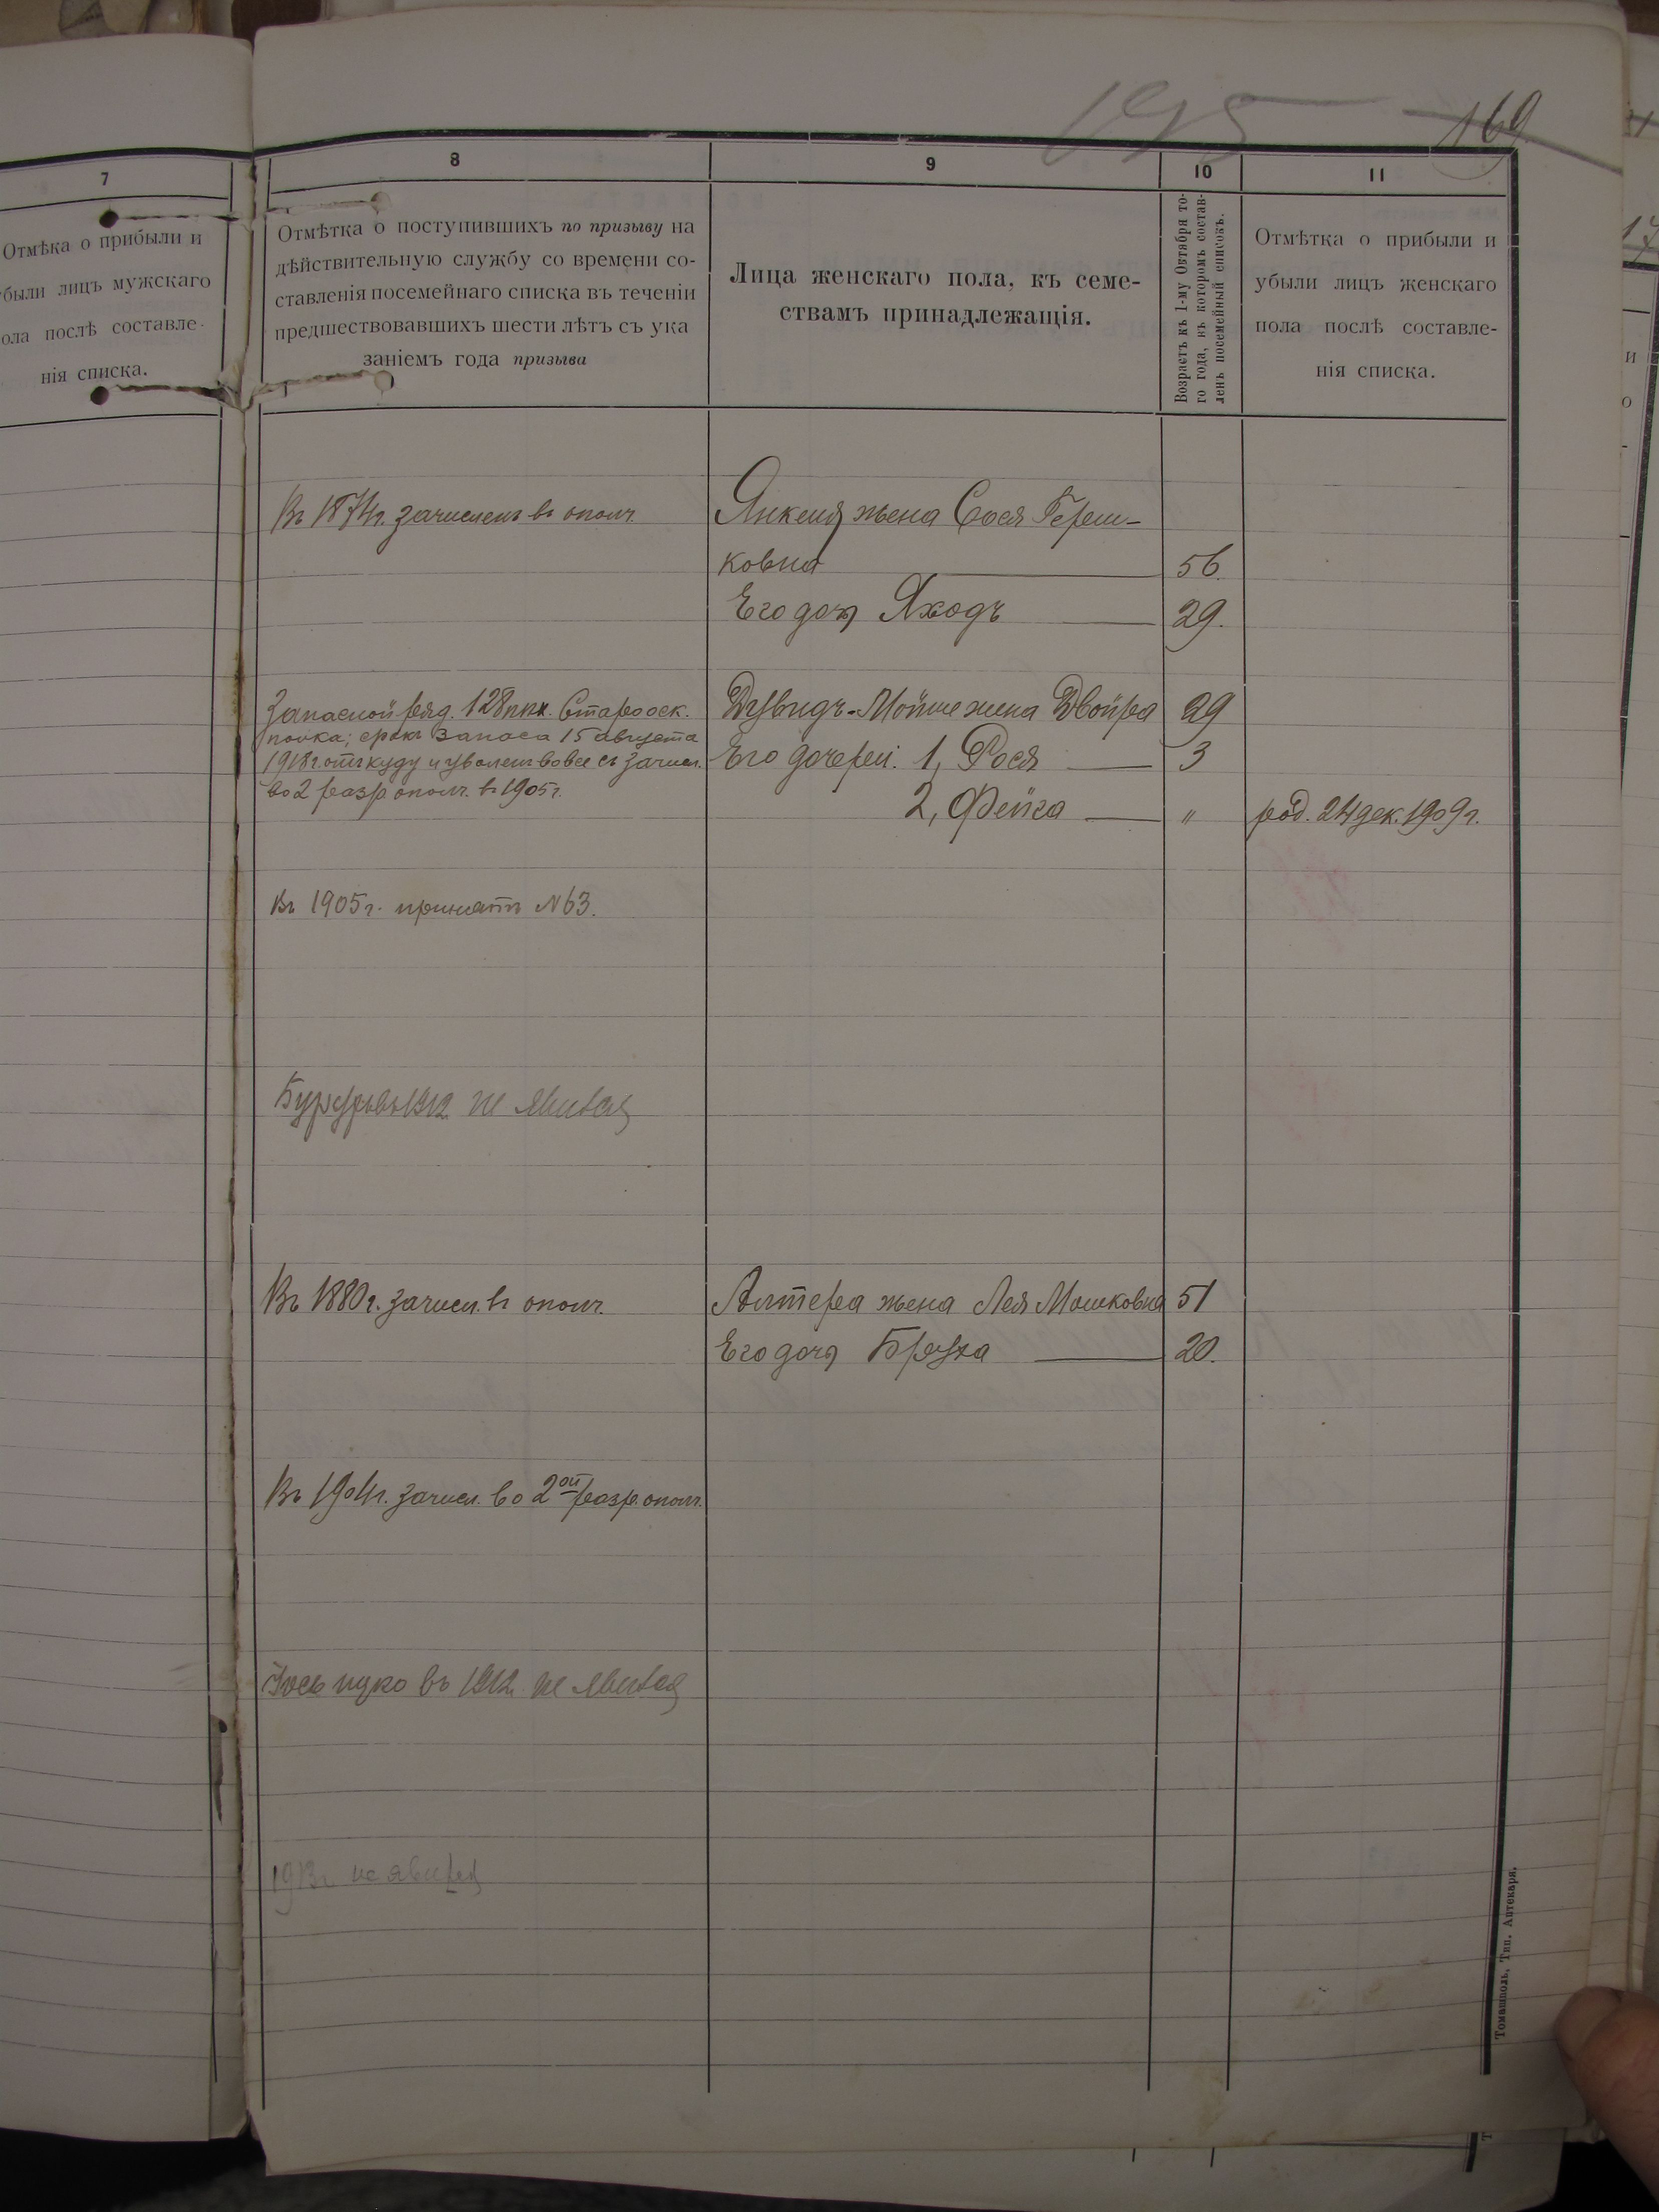 195
169
7
Отмѣка о прибыли и
были лицъ мужскаго
ола послѣ составле-
нія списка.
8
Отмѣтка о поступившихъ по призыву на
дѣйствительную службу со времени со-
ставленія посемейнаго списка въ теченіи
предшествовавшихъ шести лѣтъ съ ука
заніемъ года призыва
9
Лица женскаго пола, къ семе-
ствамъ принадлежащія.
10
Возрастъ къ 1-му Октября то-
го года, въ которомъ состав-
ленъ посемейный списокъ.
11
Отмѣтка о прибыли и
убыли лицъ женскаго
пола послѣ составле-
нія списка.
Въ 1874г. зачисленъ въ ополч.
Янкеля жена Сося Гершковна
ковна 56.
Его дочь Яходъ 29.
Запасной ряд. 128 Старооск.
полка; срокъ запаса 15 августа
1918г. откуду и уволенъ вовсе съ зачисл.
во 2 разр. ополч. въ 1905г.
Дувидъ-Мойше жена Двойра 29
Его дочери: 1, Рося 3
2, Фейга " род. 24 дек. 1909г.
Въ 1905г. принятъ №63.
въ 1912 не явился
Въ 1880г. зачисл. въ ополч.
Алтера жена Лея Мошковна 51
Его дочь 20.
Въ 1904г. зачисл. во 2ой разр. ополч.
въ 1912 не явился
1913г. не явился
Томашполь, Тип. Аптекаря.